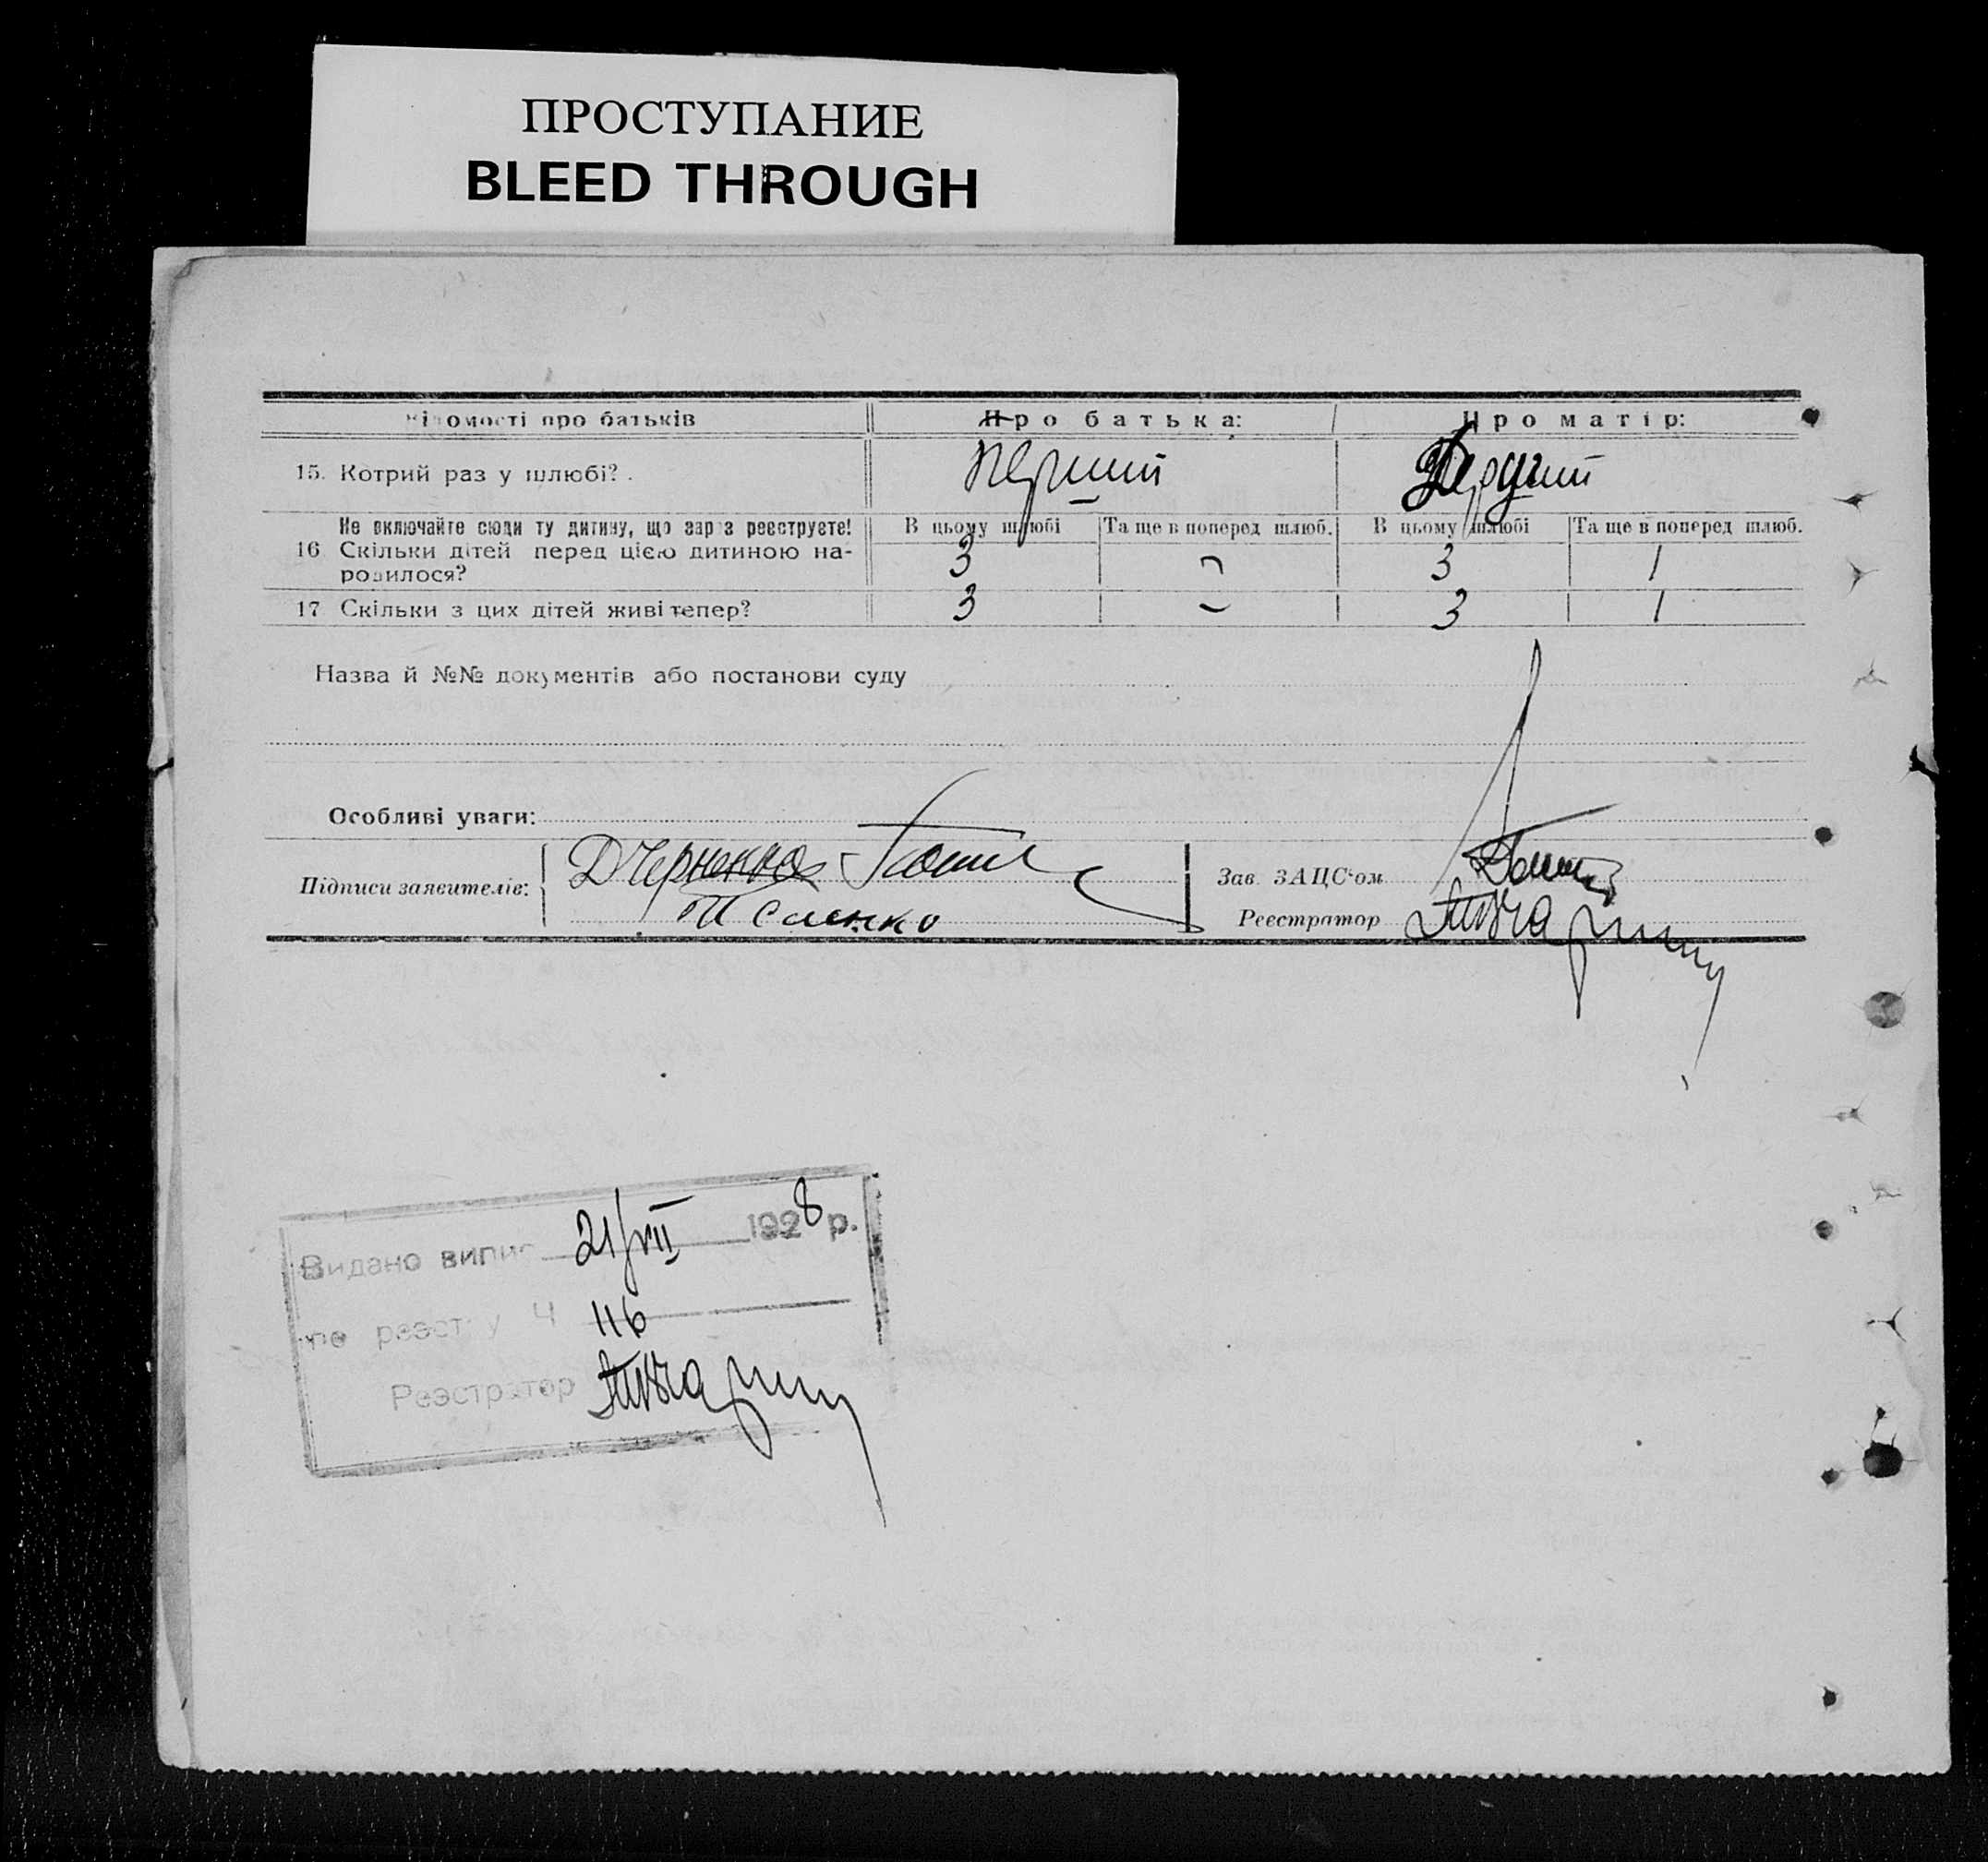 ПРОСТУПАНИЕ
BLEED THROUGH
Відомості про батьків Про батька: Про матір:
15. Котрий раз у шлюбі? . перший Другий
Не включайте сюди ту дитину, що зараз реєструєте! В цьому шлюбі Та ще в поперед шлюб. В цьому шлюбі Та ще в поперед шлюб.
16 Скільки дітей перед цією дитиною на-
родилося? 3 - 3 1
17 Скільки з цих дітей живі тепер? 3 - 3 1
Назва й №№ документів або постанови суду
Особливі уваги:
Підписи заявителів: ДЧерненко
Зав. ЗАЦС'ом
Реєстратор
Видано випис 21/VII 1928 р.
по реєстру Ч 116
Реєстратор